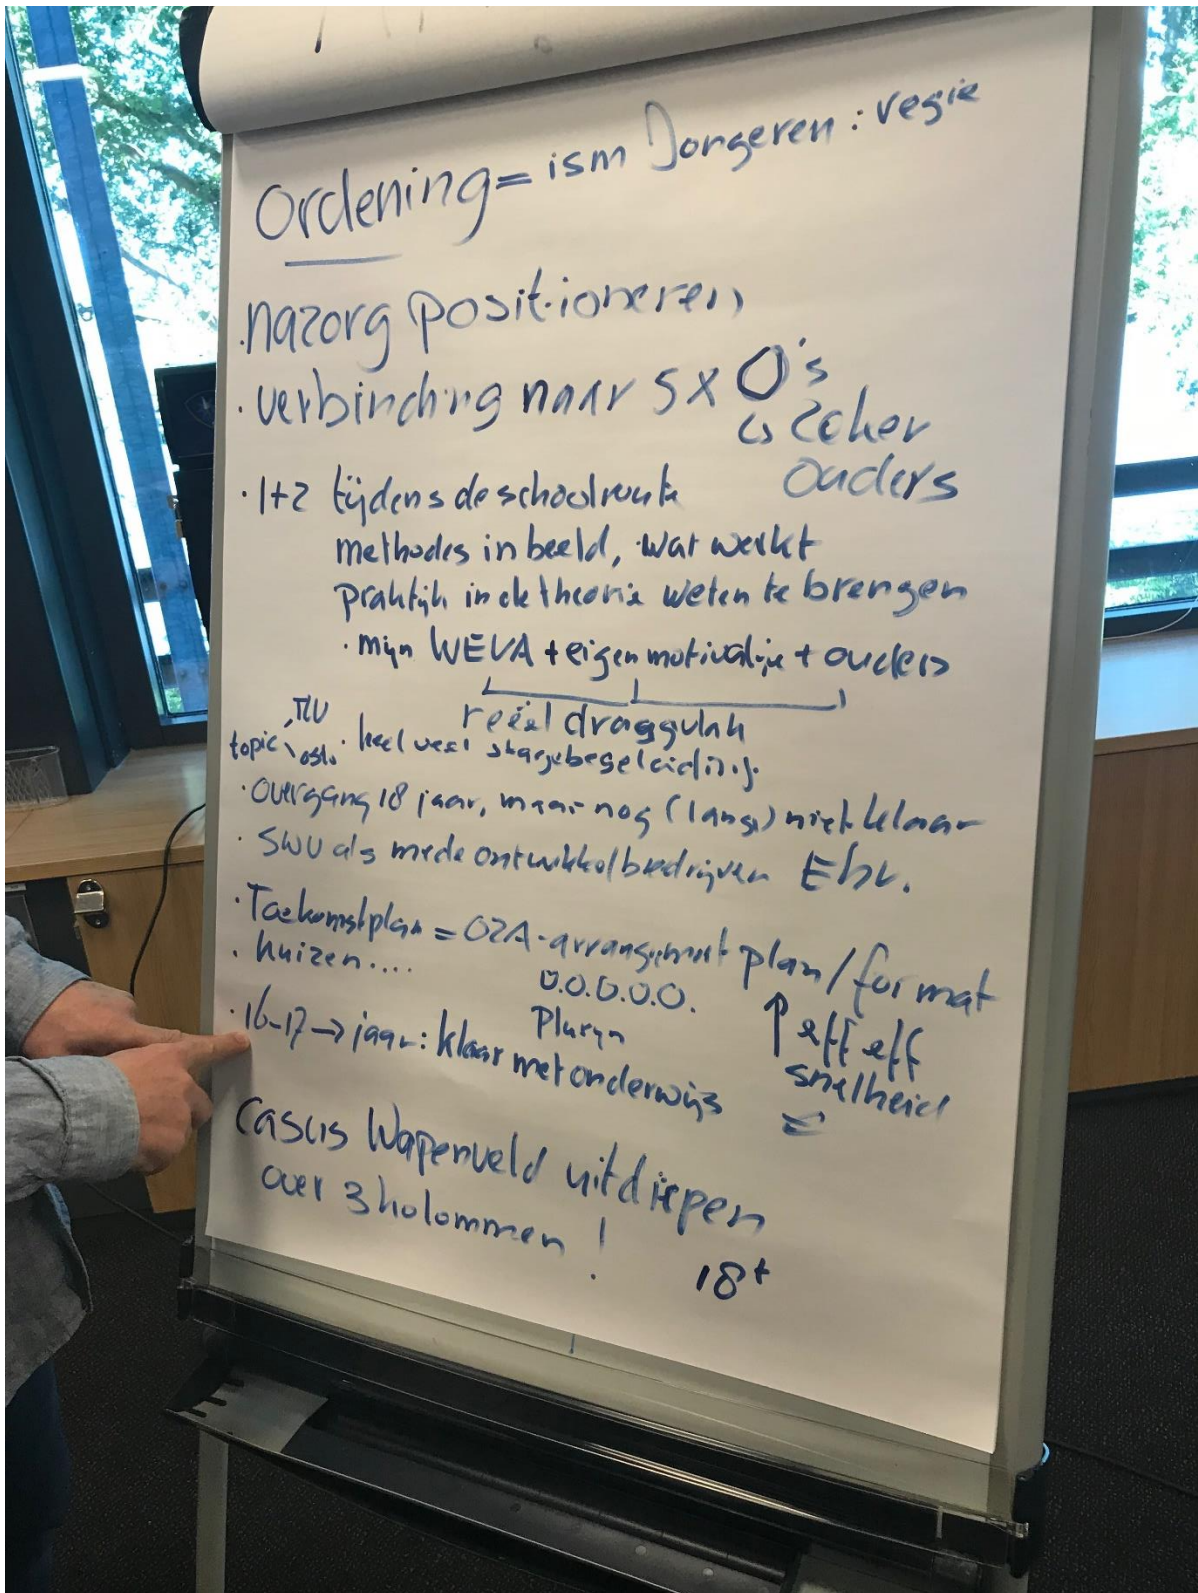 Ordening = ism Jongeren : regie
· nazorg positioneren
· verbinding naar 5 x O's
↳ zeker
ouders
· 1+2 tijdens de schoolroute
methodes in beeld, wat werkt
praktijk in de theorie weten te brengen
· mijn WEVA + eigen motivatie + ouders
reëel draagvlak
topic
· heel veel stagebegeleiding.
· Overgang 18 jaar, maar nog (lang) niet klaar
· SWV als mede ontwikkel bedrijven
· Toekomstplan = OZA-arrangement plan / format
· huizen....
O.O.O.O.O.
Pluryn
↑ eff eff
snelheid
· 16-17 → jaar: klaar met onderwijs
Casus Wapenveld uitdiepen
over 3 kolommen !
18+